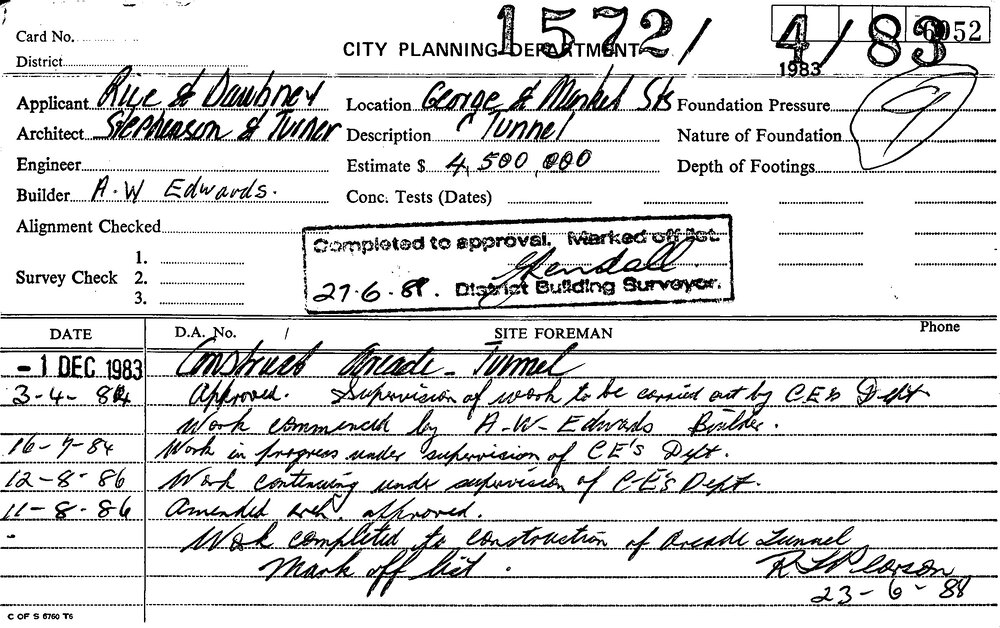 1572/ 4/83
6052
Card No.
CITY PLANNING DEPARTMENT
1983
District
Applicant Rice & Daubney Location George & Market Sts Foundation Pressure
Architect Stephenson & Turner Description Tunnel Nature of Foundation
Engineer Estimate $ 4,500,000 Depth of Footings
Builder A.W Edwards. Conc. Tests (Dates)
Alignment Checked
Completed to approval. Marked off list.
1.
Survey Check 2.
Kendall.
27.6.88. District Building Surveyor.
3.
DATE D.A. No. / SITE FOREMAN Phone
-1 DEC 1983 Construct Arcade - Tunnel
3-4-84 Approved. Supervision of work to be carried out by C.E's Dept
Work commenced by A-W-Edwards Builder.
16-7-84 Work in progress under supervision of C.E's Dept.
12-8-86 Work continuing under supervision of C-E's Dept.
11-8-86 Amended arch. approved.
- Work completed to construction of Arcade Tunnel
Mark off list. R Pearson
23-6-88
C OF S 6760 T6